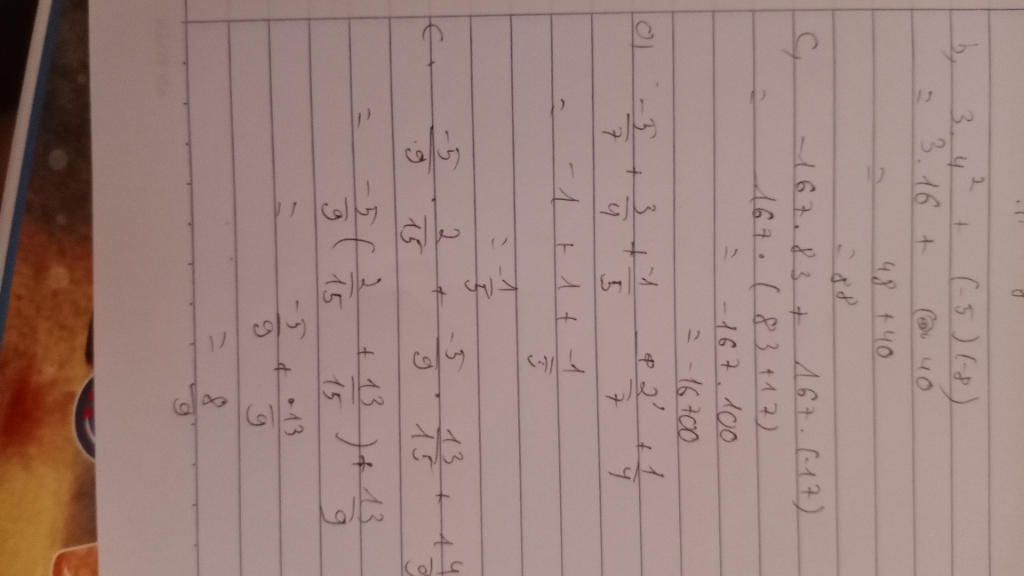 b, 3.4² + (-5)(-8)
= 3.16 + 40
= 48 + 40
= 88
c, -167.83 + 167.(-17)
= 167.(83+17)
= -167.100
= -16700
d) -5/7 + 3/4 + -1/5 + 2/7 + 1/4
= -1 + 1 + -1/5
= -1/5
e. -5/9 . 2/15 + -5/9 . 13/15 + 14/9
= -5/9 (2/15 + 13/15) + 13/9
= -5/9 + 13/9
= 8/9